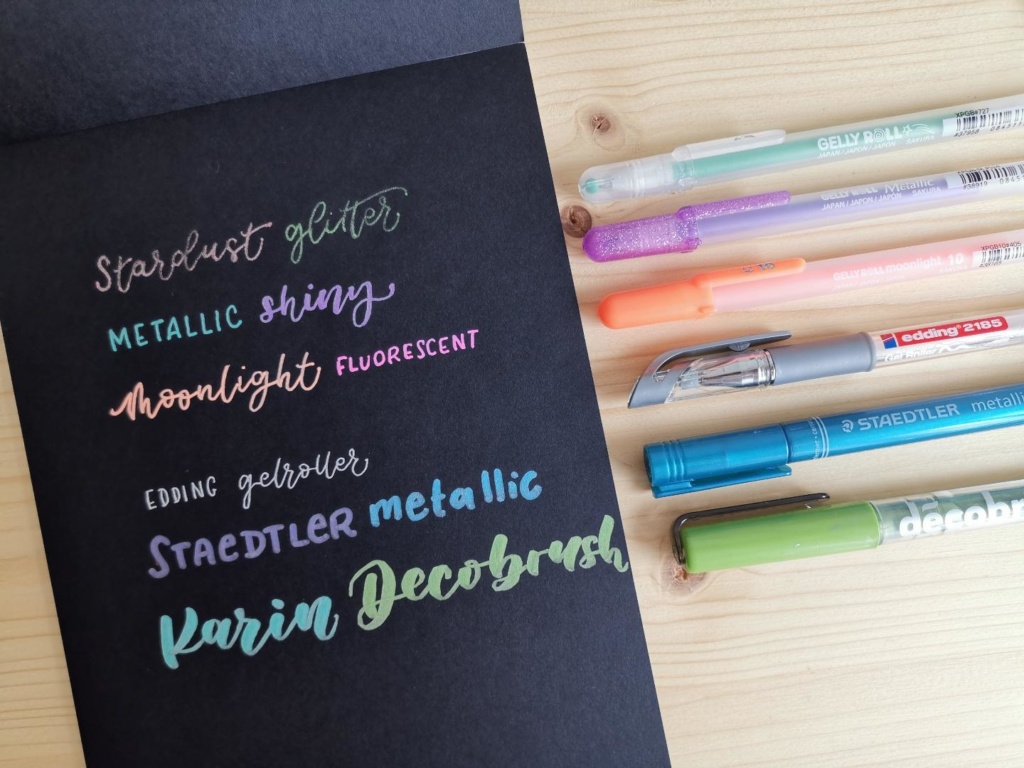 Stardust glitter
METALLIC shiny
Moonlight FLUORESCENT
EDDING gelroller
STAEDTLER metallic
Karin Decobrush
GELLY ROLL
JAPAN / JAPON / JAPÓN SAKURA
XPGB#727
GELLY ROLL Metallic
JAPAN / JAPON / JAPÓN SAKURA
#38919
GELLY ROLL moonlight 10
XPGB10#405
edding 2185
Gel Roller
STAEDTLER metalli
decobr